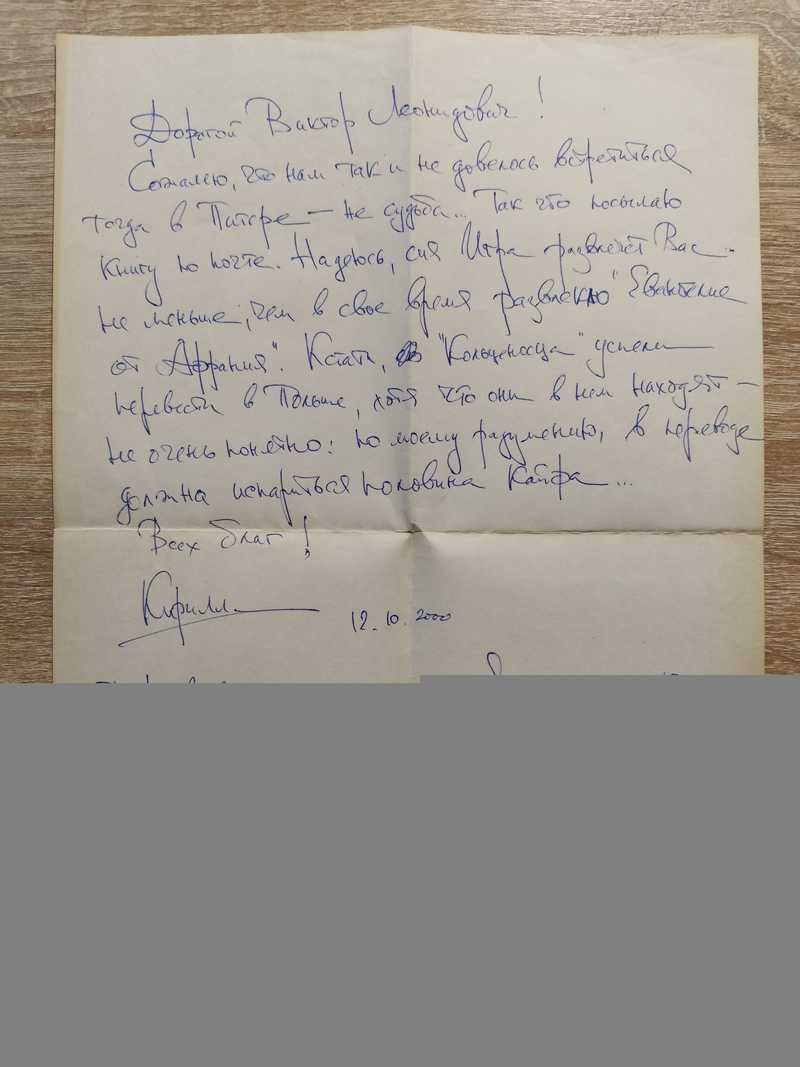 Дорогой Виктор Леонидович!
Сожалею, что нам так и не довелось встретиться
тогда в Питере — не судьба... Так что посылаю
книгу по почте. Надеюсь, сия Игра развлечёт Вас
не меньше, чем в свое время развлекло "Евангелие
от Афрания". Кстати, "Кольценосца" успели
перевести в Польше, хотя что они в нем находят —
не очень понятно: по моему разумению, в переводе
должна испариться половина кайфа...
Всех благ!
Кирилл
12.10.2000